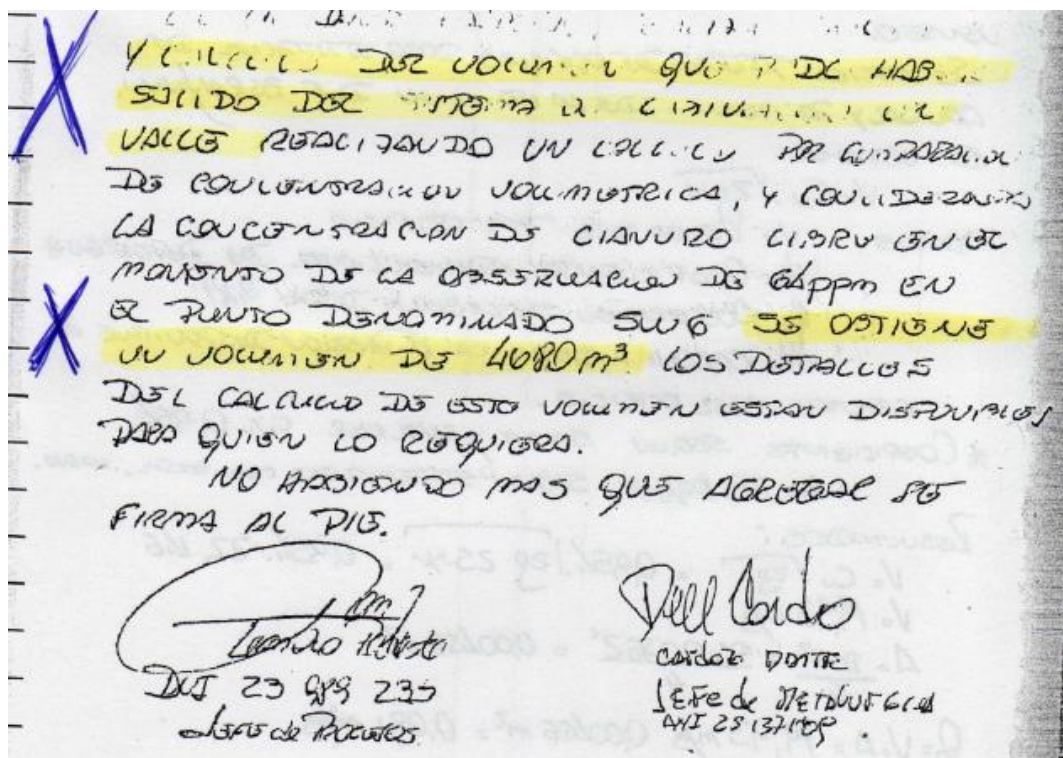 Y CALCULO DEL VOLUMEN QUE PUDE HABER
SALIDO DEL SISTEMA
VALLE REALIZANDO UN CALCULO POR COMPARACION
DE CONCENTRACION VOLUMETRICA, Y CONSIDERANDO
LA CONCENTRACION DE CIANURO LIBRE EN EL
MOMENTO DE LA OBSERVACION DE 64ppm EN
EL PUNTO DENOMINADO SW6 SE OBTIENE
UN VOLUMEN DE 4680m³ LOS DETALLES
DEL CALCULO DE ESTE VOLUMEN ESTAN DISPONIBLES
PARA QUIEN LO REQUIERA.
NO HABIENDO MAS QUE AGREGAR SE
FIRMA AL PIE.
Leandro
DNI 23 989 233
Jefe de Procesos
Cordoba DANTE
JEFE de METALURGICA
DNI